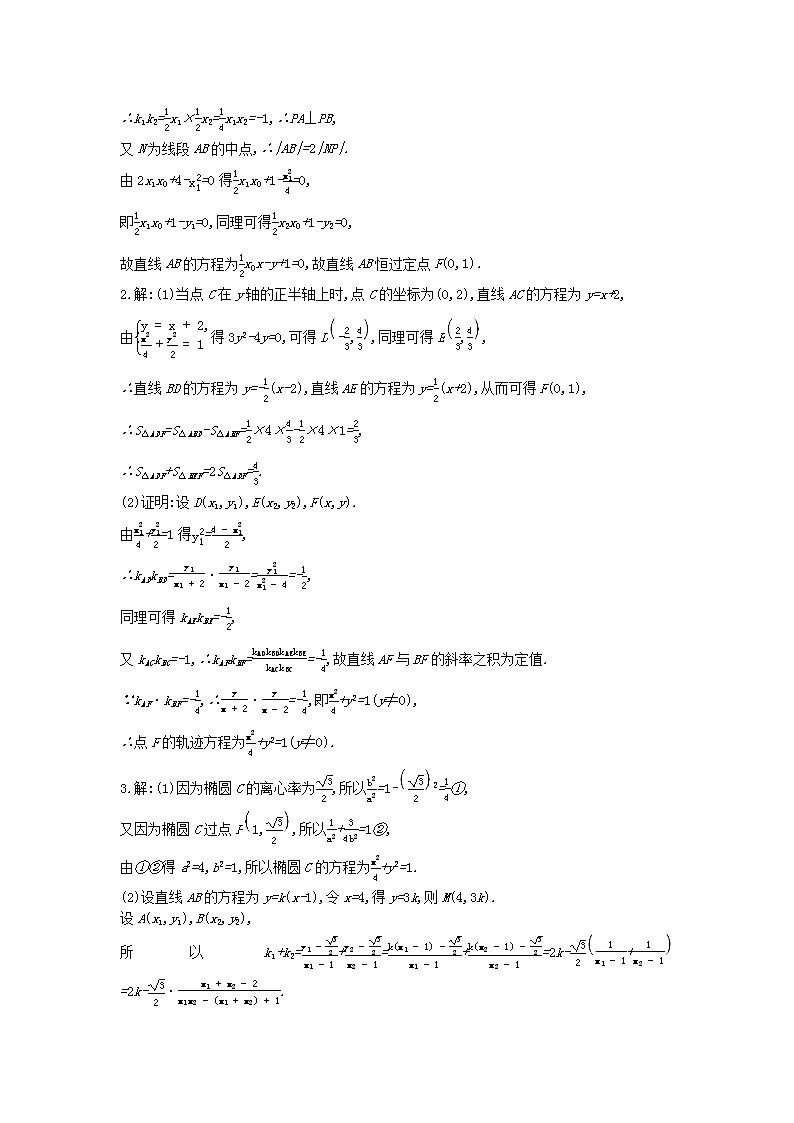 ∴k₁k₂=\frac{1}{2}x₁×\frac{1}{2}x₂=\frac{1}{4}x₁x₂=-1,∴PA⊥PB,
又N为线段AB的中点,∴|AB|=2|NP|.
由2x₁x₀+4-x_1^2=0得\frac{1}{2}x₁x₀+1-\frac{x_1^2}{4}=0,
即\frac{1}{2}x₁x₀+1-y₁=0,同理可得\frac{1}{2}x₂x₀+1-y₂=0,
故直线AB的方程为\frac{1}{2}x₀x-y+1=0,故直线AB恒过定点F(0,1).
2.解:(1)当点C在y轴的正半轴上时,点C的坐标为(0,2),直线AC的方程为y=x+2,
由\begin{cases} y = x + 2, \\ \frac{x^2}{4} + \frac{y^2}{2} = 1 \end{cases}得3y²-4y=0,可得D(-\frac{2}{3},\frac{4}{3}),同理可得E(\frac{2}{3},\frac{4}{3}),
∴直线BD的方程为y=-\frac{1}{2}(x-2),直线AE的方程为y=\frac{1}{2}(x+2),从而可得F(0,1),
∴S_{△ADF}=S_{△ABD}-S_{△ABF}=\frac{1}{2}×4×\frac{4}{3}-\frac{1}{2}×4×1=\frac{2}{3},
∴S_{△ADF}+S_{△BEF}=2S_{△ADF}=\frac{4}{3}.
(2)证明:设D(x₁,y₁),E(x₂,y₂),F(x,y).
由\frac{x_1^2}{4}+\frac{y_1^2}{2}=1得y_1^2=\frac{4 - x_1^2}{2},
∴k_{AD}k_{BD}=\frac{y_1}{x_1 + 2}·\frac{y_1}{x_1 - 2}=\frac{y_1^2}{x_1^2 - 4}=-\frac{1}{2},
同理可得k_{AE}k_{BE}=-\frac{1}{2},
又k_{AC}k_{BC}=-1,∴k_{AF}k_{BF}=\frac{k_{AD}k_{BD}k_{AE}k_{BE}}{k_{AC}k_{BC}}=-\frac{1}{4},故直线AF与BF的斜率之积为定值.
∵k_{AF}·k_{BF}=-\frac{1}{4},∴\frac{y}{x + 2}·\frac{y}{x - 2}=-\frac{1}{4},即\frac{x^2}{4}+y²=1(y≠0),
∴点F的轨迹方程为\frac{x^2}{4}+y²=1(y≠0).
3.解:(1)因为椭圆C的离心率为\frac{\sqrt{3}}{2},所以\frac{b^2}{a^2}=1-(\frac{\sqrt{3}}{2})²=\frac{1}{4}①,
又因为椭圆C过点P(1,\frac{\sqrt{3}}{2}),所以\frac{1}{a^2}+\frac{3}{4b^2}=1②,
由①②得a²=4,b²=1,所以椭圆C的方程为\frac{x^2}{4}+y²=1.
(2)设直线AB的方程为y=k(x-1),令x=4,得y=3k,则M(4,3k).
设A(x₁,y₁),B(x₂,y₂),
所以k₁+k₂=\frac{y_1 - \frac{\sqrt{3}}{2}}{x_1 - 1}+\frac{y_2 - \frac{\sqrt{3}}{2}}{x_2 - 1}=\frac{k(x_1 - 1) - \frac{\sqrt{3}}{2}}{x_1 - 1}+\frac{k(x_2 - 1) - \frac{\sqrt{3}}{2}}{x_2 - 1}=2k-\frac{\sqrt{3}}{2}(\frac{1}{x_1 - 1}+\frac{1}{x_2 - 1})
=2k-\frac{\sqrt{3}}{2}·\frac{x_1 + x_2 - 2}{x_1x_2 - (x_1 + x_2) + 1}.